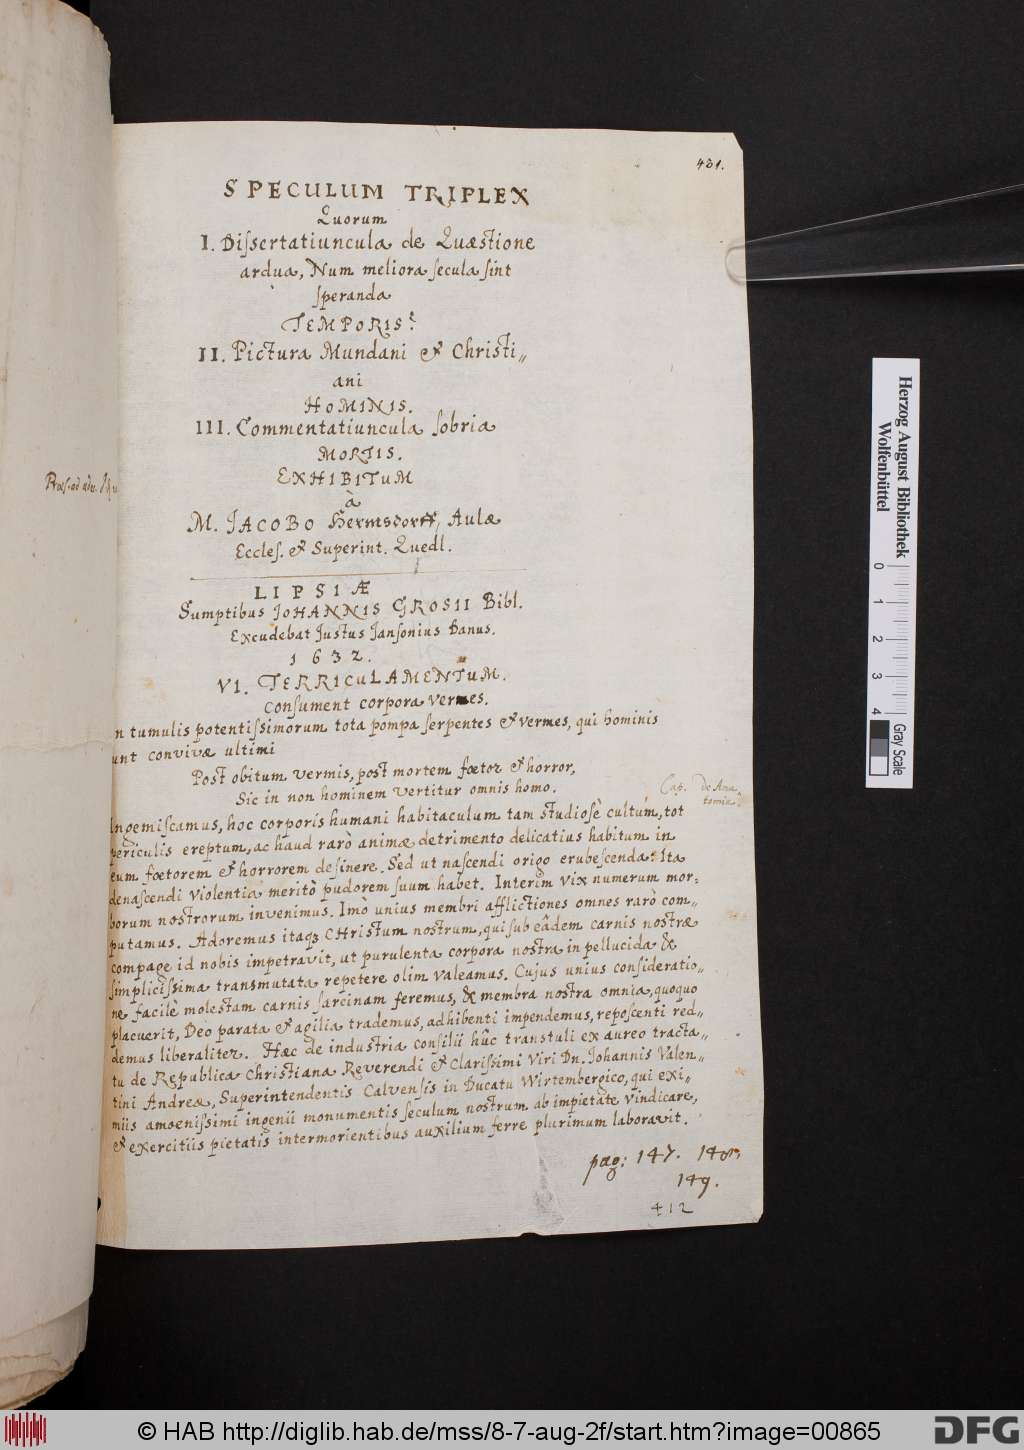 431.
SPECULUM TRIPLEX
Quorum
I. Dissertatiuncula de Quæstione
ardua, Num meliora secula sint
speranda
TEMPORIS?
II. Pictura Mundani & Christi〃
ani
HOMINIS.
III. Commentatiuncula sobria
MORTIS.
EXHIBITUM
à
M. JACOBO Hermsdorff, Aulæ
Eccles. & Superint. Quedl.
LIPSIÆ
Sumptibus JOHANNIS GROSII Bibl.
Excudebat Justus Jansonius Danus.
1632.
VI. TERRICULAMENTUM.
Consument corpora vermes.
n tumulis potentissimorum tota pompa serpentes & vermes, qui hominis
unt convivæ ultimi
Post obitum vermis, post mortem fœtor & horror,
Sic in non hominem vertitur omnis homo.
Cap. de Ana
tomia
Ingemiscamus, hoc corporis humani habitaculum tam studiosè cultum, tot
periculis ereptum, ac haud rarò animæ detrimento delicatius habitum in
eum fœtorem & horrorem desinere. Sed ut nascendi origo erubescenda: Ita
denascendi violentia meritò pudorem suum habet. Interim vix numerum mor=
borum nostrorum invenimus. Imò unius membri afflictiones omnes rarò com〃
putamus. Adoremus itaqꝫ CHristum nostrum, qui sub eâdem carnis nostræ
compage id nobis impetravit, ut purulenta corpora nostra in pellucida &
simplicissima transmutata repetere olim valeamus. Cujus unius consideratio〃
ne facilè molestam carnis sarcinam feremus, & membra nostra omnia, quoquo
placuerit, Deo parata & agilia trademus, adhibenti impendemus, reposcenti red〃
demus liberaliter. Hæc de industria consilii hûc transtuli ex aureo tracta〃
tu de Republica Christiana Reverendi & Clarissimi Viri Dn. Johannis Valen〃
tini Andreæ, Superintendentis Calvensis in Ducatu Wirtembergico, qui exi〃
miis amoenissimi ingenii monumentis seculum nostrum ab impietate vindicare,
& exercitiis pietatis intermorientibus auxilium ferre plurimum laboravit.
pag: 147. 148.
149.
412
Herzog August Bibliothek
Wolfenbüttel
0 1 2 3 4
Gray Scale
© HAB http://diglib.hab.de/mss/8-7-aug-2f/start.htm?image=00865
DFG